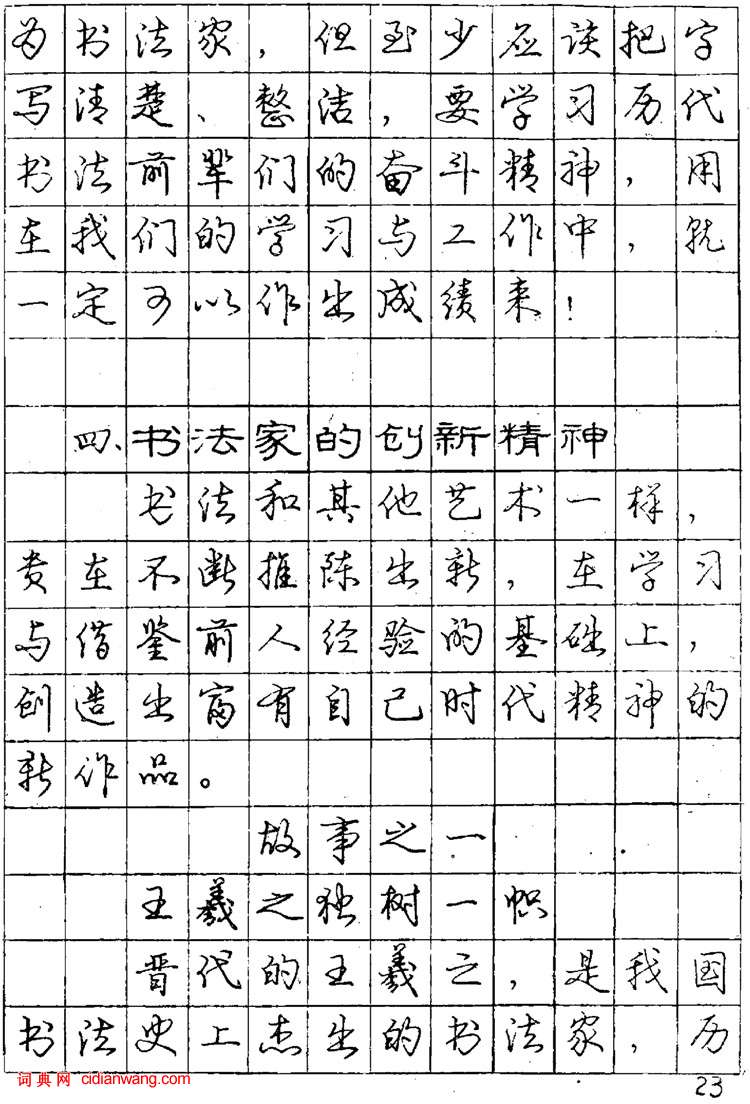 为书法家，但至少应该把字
写清楚、整洁，要学习历代
书法前辈们的奋斗精神，用
在我们的学习与工作中，就
一定可以作出成绩来！
四、书法家的创新精神
书法和其他艺术一样，
贵在不断推陈出新，在学习
与借鉴前人经验的基础上，
创造出富有自己时代精神的
新作品。
故事之一
王羲之独树一帜
晋代的王羲之，是我国
书法史上杰出的书法家，历
词典网 cidianwang.com
23